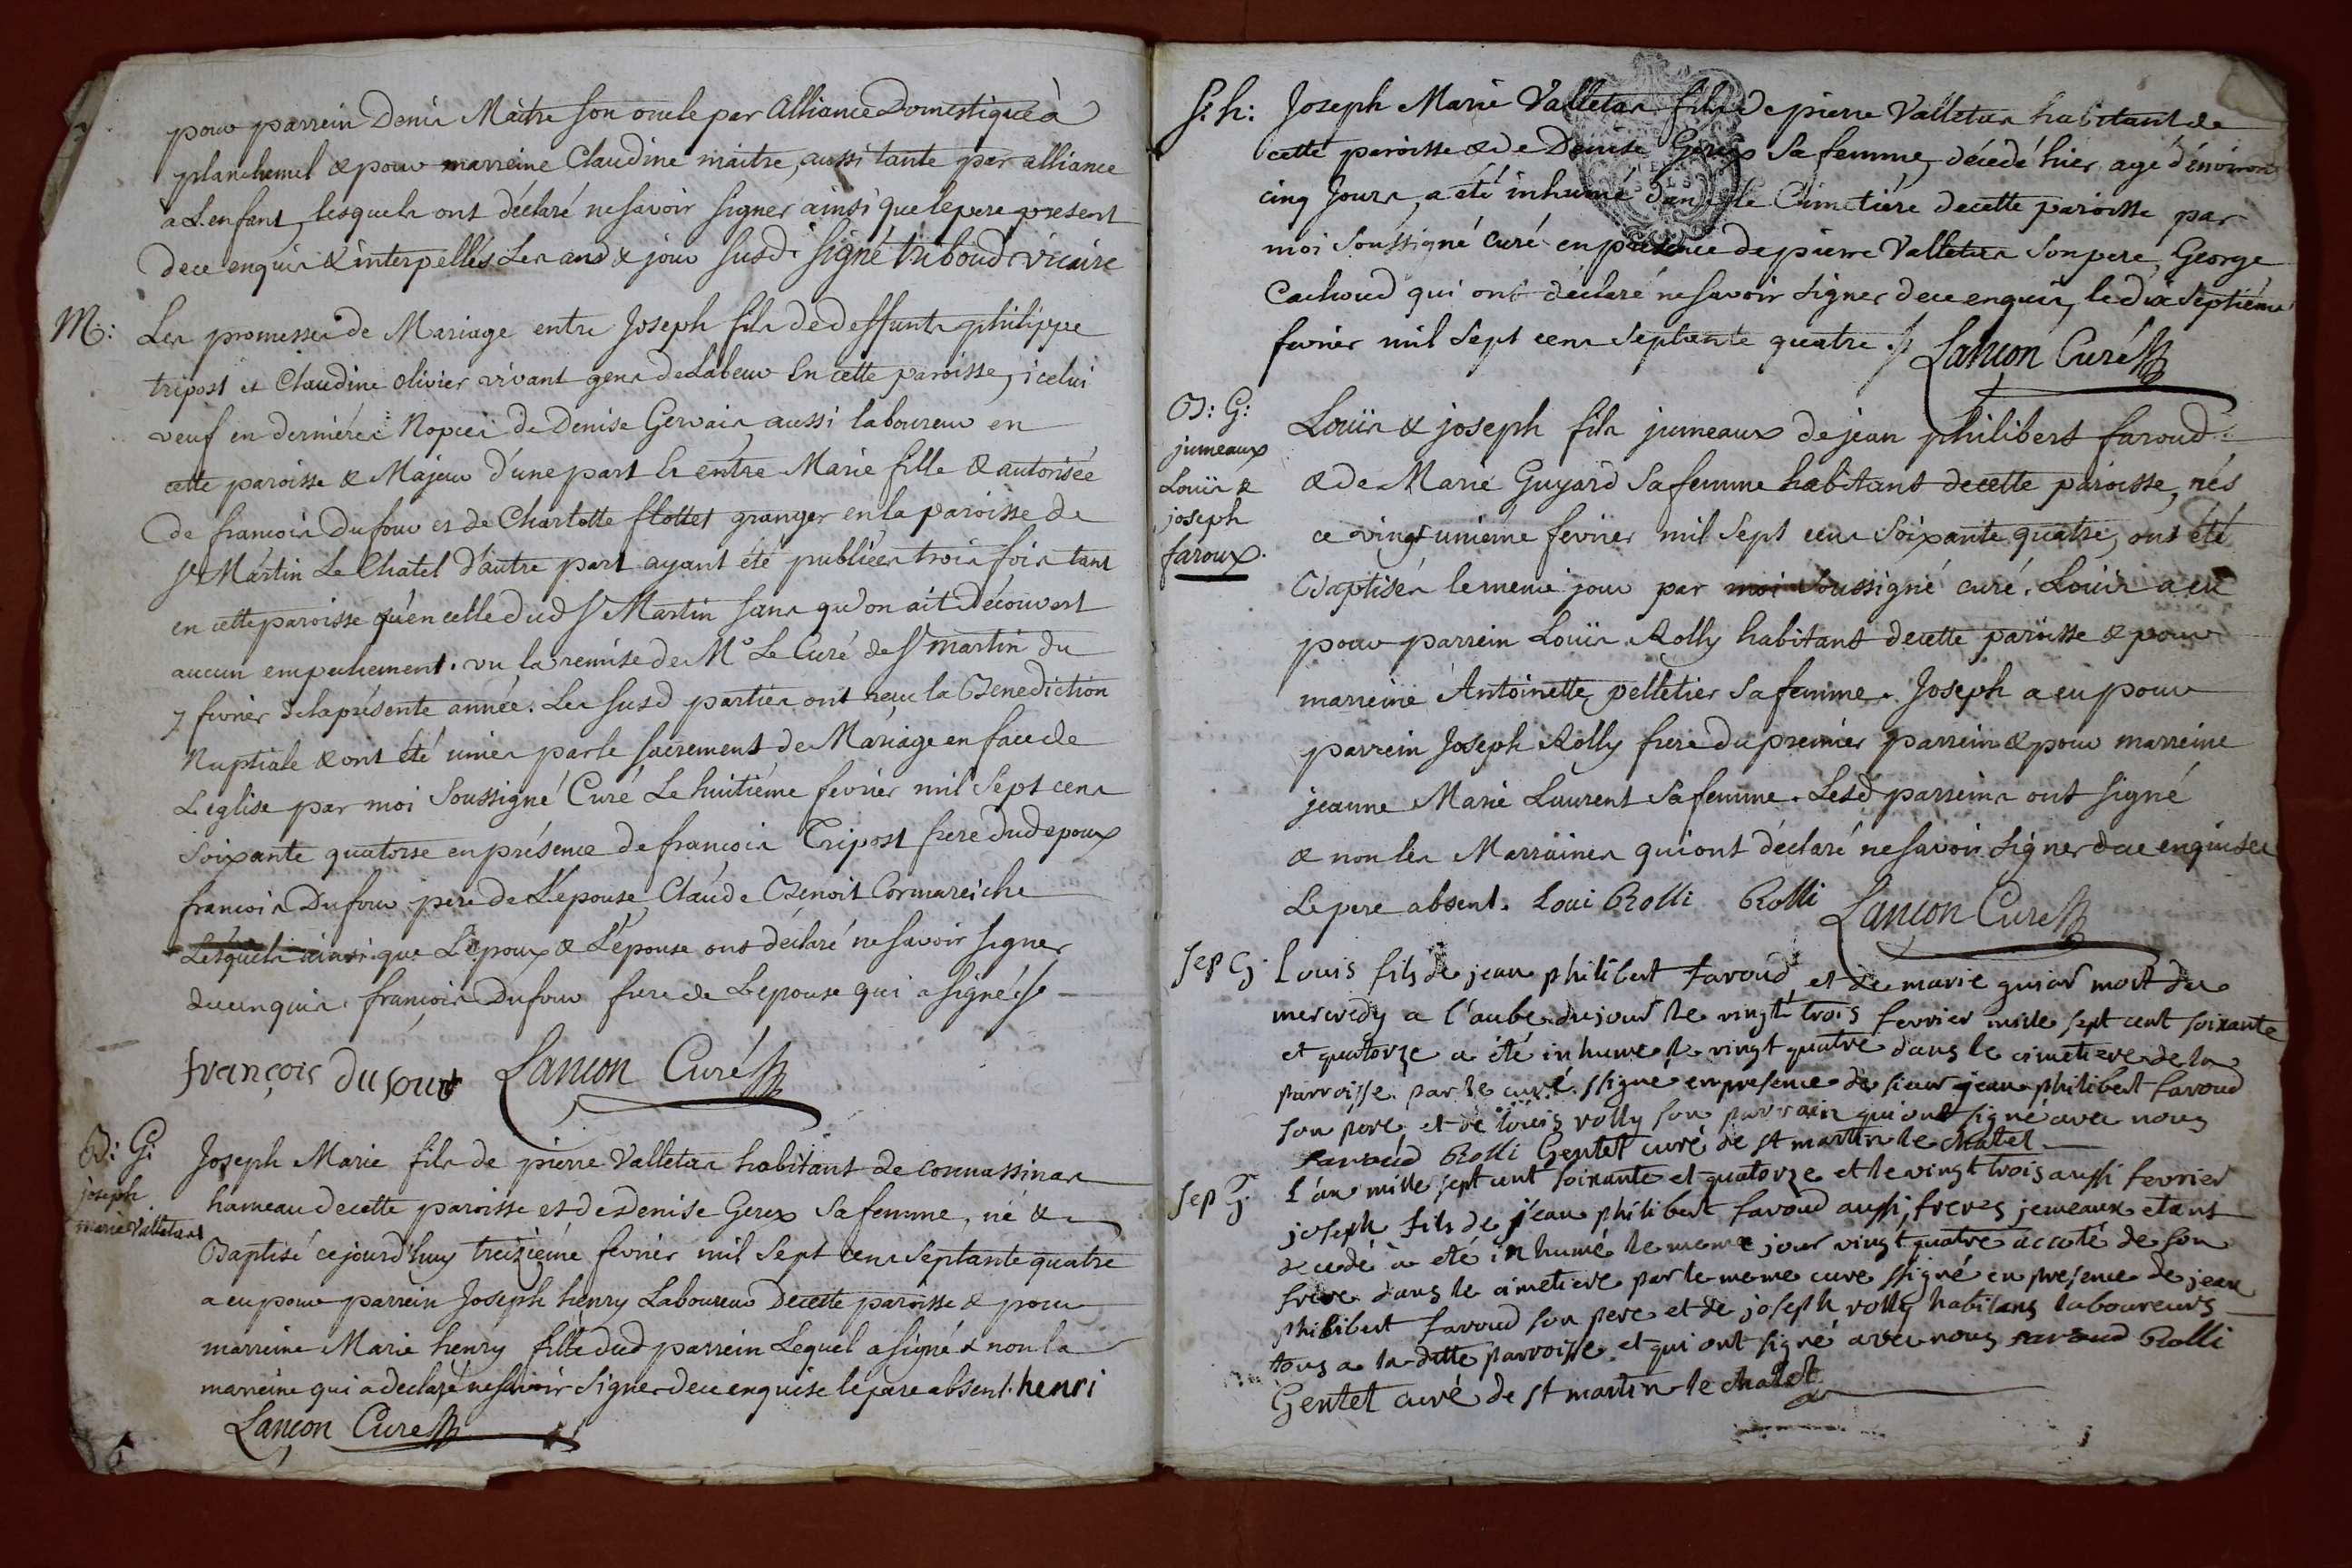 pour parrein Denis Maitre son oncle par Alliance Domestique à
planchemel & pour marreine Claudine maitre, aussi tante par alliance
a L'enfant, lesquels ont déclaré ne savoir signer ainsi que le pere present
de ce enquis & interpellés Les and & jour susd. signé triboud vicaire
M: Les promesses de Mariage entre Joseph fils de deffunts philippe
tripost et Claudine olivier vivant gens de Labeur En cette paroisse, icelui
veuf en derniéres Nopces de Denise Gervais aussi laboureur en
cette paroisse & Majeur d'une part Et entre Marie fille & autorisée
de francois Dufour et de Charlotte flottet granger en la paroisse de
St Martin Le Chatel d'autre part ayant été publiées trois fois tant
en cette paroisse qu'en celle dud St Martin sans qu'on ait découvert
aucun empechement. vu la remise de Mr Le Curé de St martin du
7 fevrier de la présente année. Les susd parties ont reçu la Benediction
Nuptiale & ont été unies par le sacrement de Mariage en face de
L'eglise par moi soussigné Curé Le huitiéme fevrier mil sept cens
soixante quatorse en présence de francois Tripost frere dud epoux
francois Dufour pere de L'epouse, Claude Benoit Cormareiche
Lesquels ainsi que L'epoux & L'épouse ont déclaré ne savoir signer
de ce enquis. francois Dufour frere de L'epouse qui a signé
françois dufour Lancon Curé
B: G: Joseph Marie fils de pierre Valletas habitant de connassinas
joseph marie Valletas
hameau de cette paroisse et de Denise Gerex sa femme, né &
Baptisé ce jourd'huy treiziéme fevrier mil sept cens septante quatre
a eu pour parrein Joseph henry Laboureur De cette paroisse & pour
marreine Marie henry fille dud parrein Lequel a signé & non la
marreine qui a declaré ne savoir signer de ce enquise le pere absent. henri
Lancon Curé
S: h: Joseph Marie Valletas fils de pierre Valletas habitant de
cette paroisse & de Denise Gerex sa femme, décedé hier agé d'environ
cinq jours, a été inhumé dans le Cimetiére de cette paroisse par
moi soussigné curé en presence de pierre Valletas son pere, George
Cachoud qui ont déclaré ne savoir signer de ce enquis, le dix septiéme
fevrier mil sept cens septante quatre. Lancon Curé
B: G:
jumeaux
Louis &
joseph
faroux.
Louis & joseph fils jumeaux de jean philibert faroud
& de Marie Guyard sa femme habitant de cette paroisse, nés
ce vingt unieme fevrier mil sept cens soixante quatre, ont été
Baptisés le meme jour par moi soussigné curé. Louis a eu
pour parrein Louis Rolly habitant de cette paroisse & pour
marreine Antoinette pelletier sa femme. Joseph a eu pour
parrein Joseph Rolly frere du premier parrein & pour marreine
jeanne Marie Laurent sa femme. Lesd parreins ont signé
& non les Marraines qui ont déclaré ne savoir signer de ce enquises
Le pere absent. Loui Rolli Rolli Lancon Curé
sep G. Louis fils de jean philibert faroud et de marie guiar mort du
mercredy a l'aube du jour le vingt trois fevrier mille sept cent soixante
et quatorze a été inhumé le vingt quatre dans le cimetiere de la
parroisse par le curé ssigné en presence de sieur jean philibert faroud
son pere et de loüis rolly son parrain qui ont signé avec nous
faroud Rolli Gentet curé de st martin le chatel
sep G. l'an mille sept cent soixante et quatorze et le vingt trois aussi fevrier
joseph fils de jean philibert faroud aussi, freres jemeaux etant
decedé à eté inhumé le meme jour vingt quatre a coté de son
frere dans le cimetiere par le meme curé ssigné en presence de jean
philibert faroud son pere et de joseph rolly habitans laboureurs
tous a la ditte parroisse et qui ont signé avec nous faroud Rolli
Gentet curé de st martin le chatel